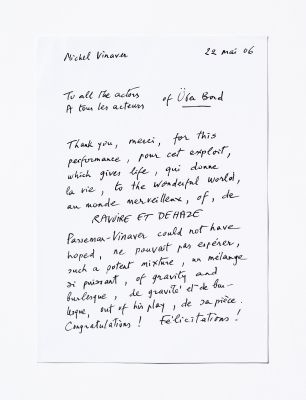 Michel Vinaver 22 mai 06
To all the actors
A tous les acteurs of Über Bord
Thank you, merci, for this
performance, pour cet exploit,
which gives life, qui donne
la vie, to the wonderful world,
au monde merveilleux, of, de
RAVOIRE ET DEHAZE
Passemar-Vinaver could not have
hoped, ne pouvait pas espérer,
such a potent mixture, un mélange
si puissant, of gravity and
burlesque, de gravité et de bur-
lesque, out of his play, de sa pièce.
Congratulations! Félicitations!